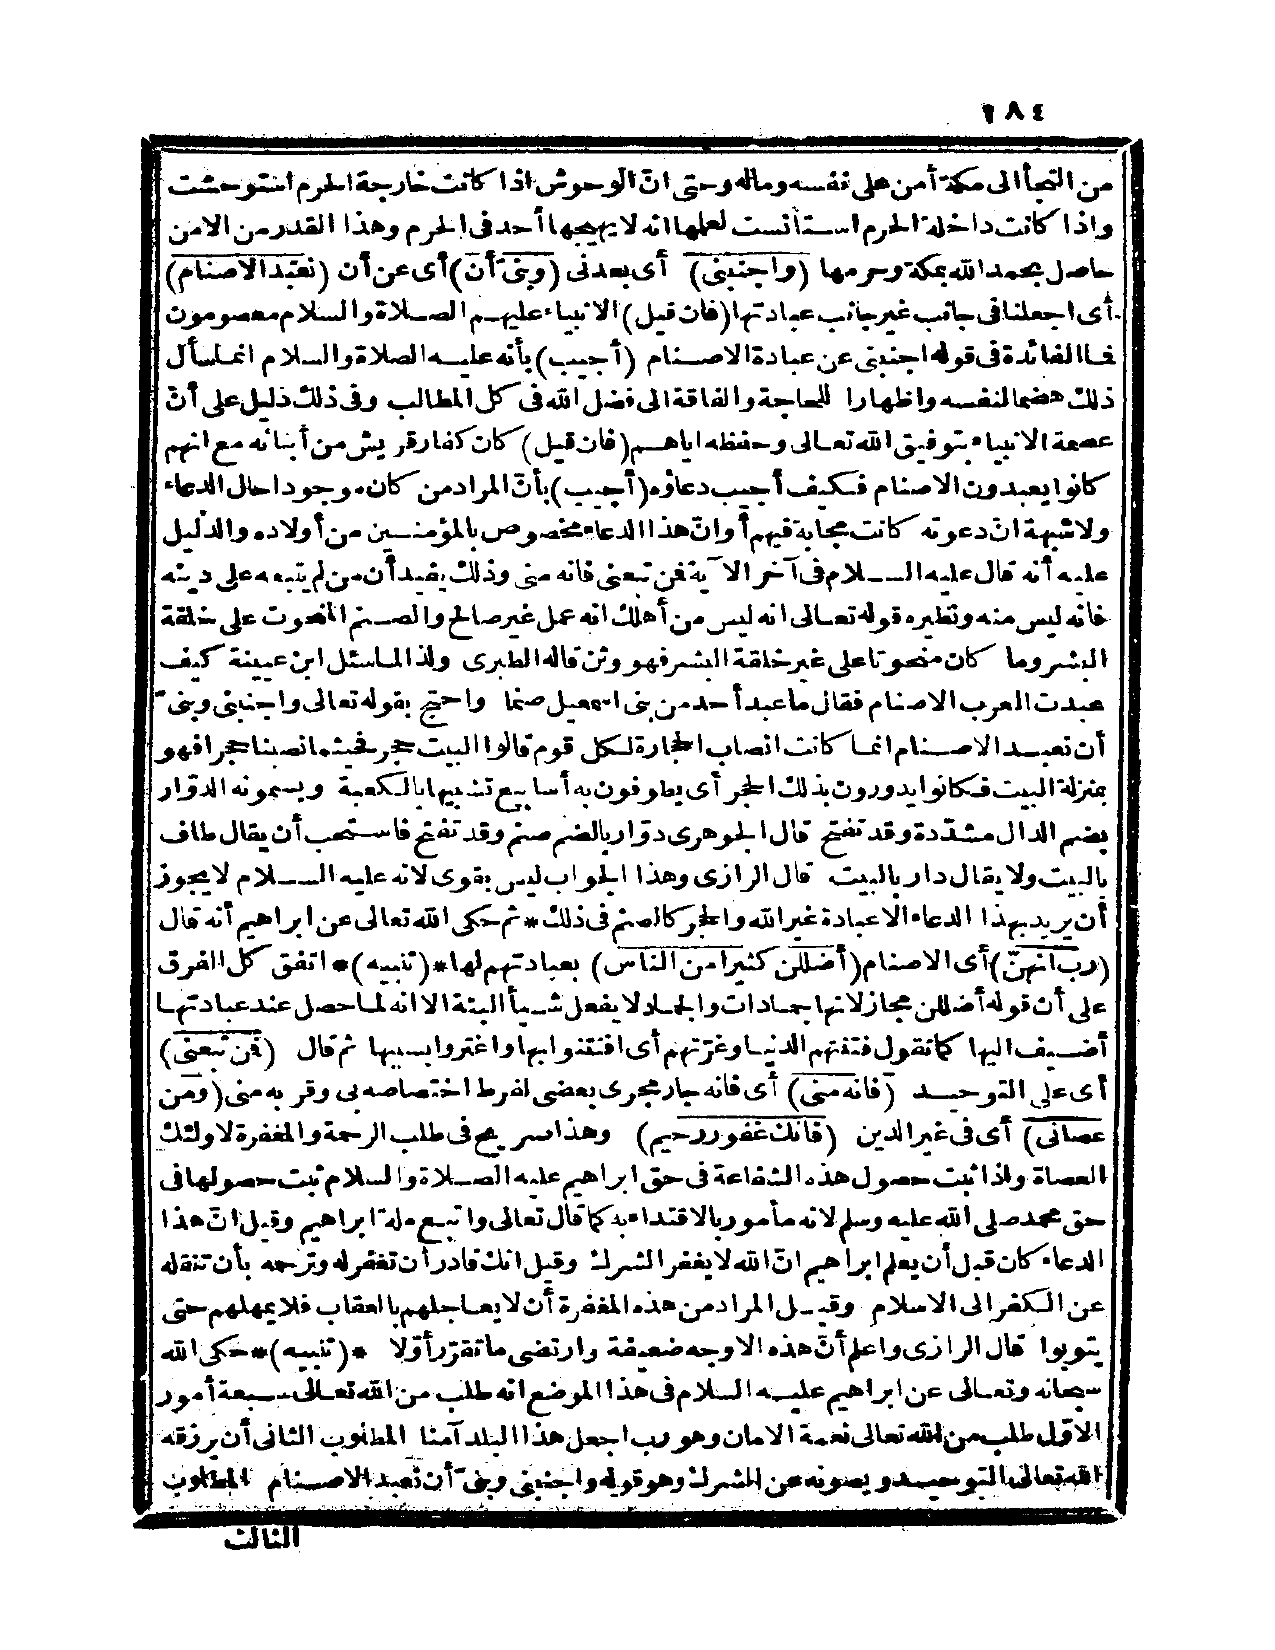 ١٨٤
من التجأ الى مكة أمن على نفسه وماله وحتى انّ الوحوش اذا كانت خارجة الحرم استوحشت
واذا كانت داخلة الحرم استأنست لعلمها انه لا يهيجها أحد فى الحرم وهذا القدر من الامن
حاصل بحمد الله بمكة وحرمها (واجنبنى) أى بعدنى (وبنىّ أن) أى عن أن (نعبد الاصنام)
أى اجعلنا فى جانب غير جانب عبادتها (فان قيل) الانبياء عليهم الصلاة والسلام معصومون
فما الفائدة فى قوله اجنبنى عن عبادة الاصنام (أجيب) بأنه عليه الصلاة والسلام انما سأل
ذلك هضما لنفسه واظهارا للحاجة والفاقة الى فضل الله فى كل المطالب وفى ذلك دليل على أنّ
عصمة الانبياء بتوفيق الله تعالى وحفظه اياهم (فان قيل) كان كفار قريش من أبنائه مع انهم
كانوا يعبدون الاصنام فكيف أجيب دعاؤه (أجيب) بأنّ المراد من كان موجودا حال الدعاء
ولا شبهة انّ دعوته كانت مجابة فيهم أو انّ هذا الدعاء مخصوص بالمؤمنين من أولاده والدليل
عليه أنه قال عليه السلام فى آخر الآية فمن تبعنى فانه منى وذلك يفيد أن من لم يتبعه على دينه
فانه ليس منه ونظيره قوله تعالى انه ليس من أهلك انه عمل غير صالح والصنم المنحوت على خلقة
البشر وما كان منحوتا على غير خلقة البشر فهو وثن قاله الطبرى ولذا لما سئل ابن عيينة كيف
عبدت العرب الاصنام فقال ما عبد أحد من بنى اسمعيل صنما واحتج بقوله تعالى واجنبنى وبنىّ
أن نعبد الاصنام انما كانت انصاب الحجارة لكل قوم قالوا البيت حجر فحيثما نصبنا حجرا فهو
بمنزلة البيت فكانوا يدورون بذلك الحجر أى يطوفون به أسابيع تشبيها بالكعبة ويسمونه الدوار
بضم الدال مشدّدة وقد تفتح قال الجوهرى دوّار بالضم صنم وقد تفتح فاستحب أن يقال طاف
بالبيت ولا يقال دار بالبيت قال الرازى وهذا الجواب ليس بقوى لانه عليه السلام لا يجوز
أن يريد بهذا الدعاء الا عبادة غير الله والحجر كالصنم فى ذلك * ثم حكى الله تعالى عن ابراهيم أنه قال
(رب انهنّ) أى الاصنام (أضللن كثيرا من الناس) بعبادتهم لها * (تنبيه) * اتفق كل الفرق
على أن قوله أضللن مجاز لانها جمادات والجماد لا يفعل شيأ البتة الا انه لما حصل عند عبادتها
أضيف اليها كما تقول فتنتهم الدنيا وغرّتهم أى افتتنوا بها واغتروا بسببها ثم قال (فمن تبعنى)
أى على التوحيد (فانه منى) أى فانه جار مجرى بعضى لفرط اختصاصه بى وقربه منى (ومن
عصانى) أى فى غير الدين (فانك غفور رحيم) وهذا صريح فى طلب الرحمة والمغفرة لاولئك
العصاة واذا ثبت حصول هذه الشفاعة فى حق ابراهيم عليه الصلاة والسلام ثبت حصولها فى
حق محمد صلى الله عليه وسلم لانه مأمور بالاقتداء به كما قال تعالى واتبع ملة ابراهيم وقيل انّ هذا
الدعاء كان قبل أن يعلم ابراهيم انّ الله لا يغفر الشرك وقيل انك قادر أن تغفر له وترحمه بأن تنقله
عن الكفر الى الاسلام وقيل المراد من هذه المغفرة أن لا يعاجلهم بالعقاب فلا يمهلهم حتى
يتوبوا قال الرازى واعلم أنّ هذه الاوجه ضعيفة وارتضى ما تقرّر أوّلا * (تنبيه) * حكى الله
سبحانه وتعالى عن ابراهيم عليه السلام فى هذا الموضع انه طلب من الله تعالى سبعة أمور
الاوّل طلب من الله تعالى نعمة الامان وهو رب اجعل هذا البلد آمنا المطلوب الثانى أن يرزقه
الله تعالى التوحيد ويصونه عن الشرك وهو قوله واجنبنى وبنىّ أن نعبد الاصنام المطلوب
الثالث